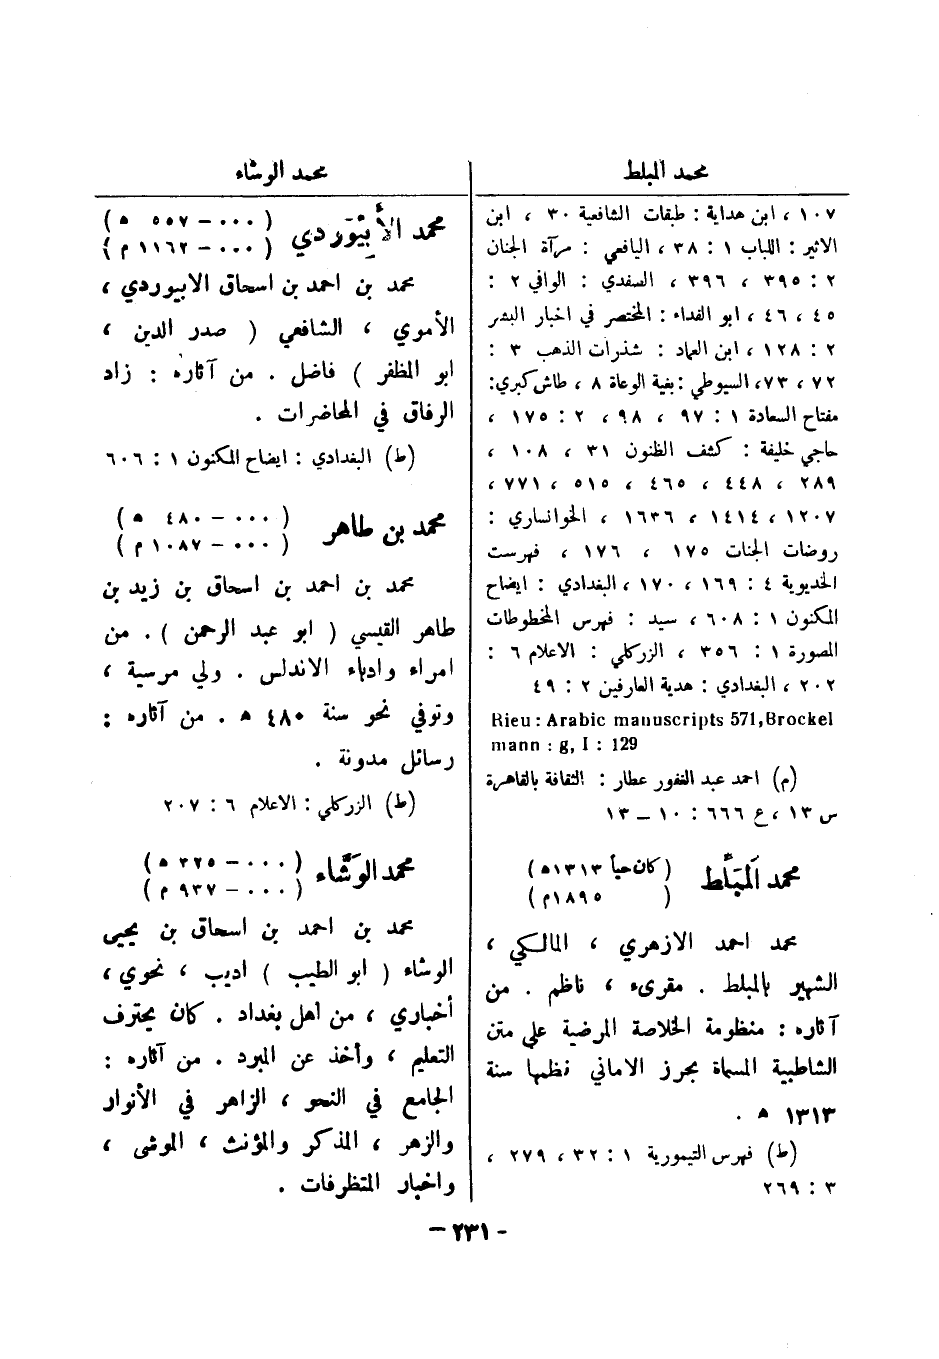 محمد المبلط
١٠٧ ، ابن هداية : طبقات الشافعية ٣٠ ، ابن
الاثير : اللباب ١ : ٣٨ ، اليافعي : مرآة الجنان
٢ : ٣٩٥ ، ٣٩٦ ، الصفدي : الوافي ٢ :
٤٥ ، ٤٦ ، ابو الفداء : المختصر في اخبار البشر
٢ : ١٢٨ ، ابن العماد : شذرات الذهب ٣ :
٧٢ ، ٧٣، السيوطي : بغية الوعاة ٨ ، طاش كبري:
مفتاح السعادة ١ : ٩٧ ، ٩٨ ، ٢ : ١٧٥ ،
حاجي خليفة : كشف الظنون ٣١ ، ١٠٨ ،
٢٨٩ ، ٤٤٨ ، ٤٦٥ ، ٥١٥ ، ٧٧١ ،
١٢٠٧ ، ١٤١٤ ، ١٦٣٦ ، الخوانساري :
روضات الجنات ١٧٥ ، ١٧٦ ، فهرست
الخديوية ٤ : ١٦٩ ، ١٧٠ ، البغدادي : ايضاح
المكنون ١ : ٦٠٨ ، سيد : فهرس المخطوطات
المصورة ١ : ٣٥٦ ، الزركلي : الاعلام ٦ :
٢٠٢ ، البغدادي : هدية العارفين ٢ : ٤٩
Rieu : Arabic manuscripts 571,Brockel
mann : g, I : 129
(م) احمد عبد الغفور عطار : الثقافة بالقاهرة
س ١٣ ، ع ٦٦٦ : ١٠ – ١٣
محمد المَبَلَّط (كان حياً ١٣١٣ ه)
( ١٨٩٥م)
محمد احمد الازهري ، المالكي ،
الشهير بالمبلط . مقرىء ، ناظم . من
آثاره : منظومة الخلاصة المرضية على متن
الشاطبية المسماة بحرز الاماني نظمها سنة
١٣١٣ ه .
(ط) فهرس التيمورية ١ : ٣٢ ، ٢٧٩ ،
٣ : ٢٦٩
محمد الوشاء
محمد الأَبِيْوَرْدي ( ٠٠٠ – ٥٥٧ ه )
( ٠٠٠ – ١١٦٢ م )
محمد بن احمد بن اسحاق الابيوردي ،
الأموي ، الشافعي ( صدر الدين ،
ابو المظفر ) فاضل . من آثاره : زاد
الرفاق في المحاضرات .
(ط) البغدادي : ايضاح المكنون ١ : ٦٠٦
محمد بن طاهر ( ٠٠٠ – ٤٨٠ ه )
( ٠٠٠ – ١٠٨٧ م )
محمد بن احمد بن اسحاق بن زيد بن
طاهر القيسي ( ابو عبد الرحمن ) . من
امراء وادباء الاندلس . ولي مرسية ،
وتوفي نحو سنة ٤٨٠ ه . من آثاره :
رسائل مدونة .
(ط) الزركلي : الاعلام ٦ : ٢٠٧
محمد الوَشَّاء ( ٠٠٠ – ٣٢٥ ه )
( ٠٠٠ – ٩٣٧ م )
محمد بن احمد بن اسحاق بن يحيى
الوشاء ( ابو الطيب ) اديب ، نحوي ،
أخباري ، من أهل بغداد . كان يحترف
التعليم ، وأخذ عن المبرد . من آثاره :
الجامع في النحو ، الزاهر في الأنوار
والزهر ، المذكر والمؤنث ، الموشى ،
واخبار المتظرفات .
- ٢٣١ –